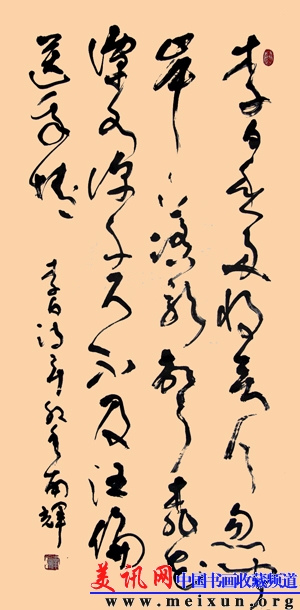 李白乘舟将欲行忽闻
岸上踏歌声桃花
潭水深千尺不及汪伦
送我情
李白诗 南輝
美讯网 中国书画收藏频道
www.meixun.org